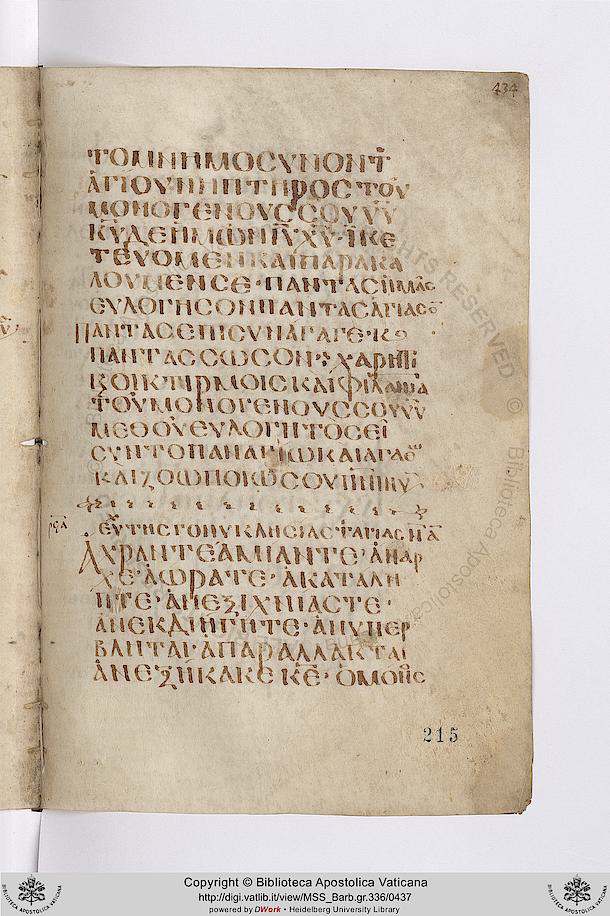 434
ΤΟΜΝΗΜΟCΥΝΟΝΤ
ΑΓΙΟΥΝΙΠΤΗΡΟC ΤΟΥ
ΜΟΝΟΓΕΝΟΥC CΟΥ ΥΥ
ΚΥ ΔΕ ΗΜΩΝ ΙΥ ΧΥ· ΙΚΕ
ΤΕΥΟΜΕΝ ΚΑΙ ΠΑΡΑΚΑ
ΛΟΥΜΕΝ CΕ· ΠΑΝΤΑC ΗΜΑC
ΕΥΛΟΓΗCΟΝ ΠΑΝΤΑC ΑΓΙΑCΟ
ΠΑΝΤΑC ΕΠΙCΥΝΑΓΑΓΕ· Κ
ΠΑΝΤΑC CΩCΟΝ· ΧΑΡΙΤΙ
Κ ΟΙΚΤΙΡΜΟΙC ΚΑΙ ΦΙΛΑΝΙΑ
ΤΟΥ ΜΟΝΟΓΕΝΟΥC CΟΥ ΥΥ
ΜΕΘ ΟΥ ΕΥΛΟΓΗΤΟC ΕΙ
CΥΝ ΤΩ ΠΑΝΑΓΙΩ ΚΑΙ ΑΓΑΘ
ΚΑΙ ΖΩΟΠΟΙΩ CΟΥ ΠΝΙ ΝΥ
ΕΥ ΤΗC ΓΟΝΥΚΛΗCΙΑC Τ ΑΓΙΑC Ν
ΑΧΡΑΝΤΕ ΑΜΙΑΝΤΕ· ΑΝΑΡ
ΧΕ· ΑΩΡΑΤΕ· ΑΚΑΤΑΛΗ
ΠΤΕ· ΑΝΕΞΙΧΝΙΑCΤΕ·
ΑΝΕΚΔΙΗΓΗΤΕ· ΑΝΥΠΕΡ
ΒΛΗΤΑΙ· ΑΠΑΡΑΛΛΑΚΤΑΙ
ΑΝΕΞΗΚΑΚΕ ΚΕ· Ο ΜΟΝΟC
215
ALL RIGHTS RESERVED
© Biblioteca Apostolica
Copyright © Biblioteca Apostolica Vaticana
http://digi.vatlib.it/view/MSS_Barb.gr.336/0437
powered by DWork - Heidelberg University Library